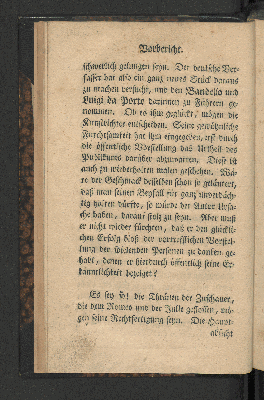 Vorbericht.
schwerlich gelungen seyn. Der deutsche Ver-
fasser hat also ein ganz neues Stück daraus
zu machen versucht, und den Bandello und
Luigi da Porto darinnen zu Führern ge-
nommen. Ob es ihm geglückt, mögen die
Kunstrichter entscheiden. Seine gewöhnliche
Furchtsamkeit hat ihm eingegeben, erst durch
die öffentliche Vorstellung das Urtheil des
Publikums darüber abzuwarten. Dieß ist
auch zu wiederholten malen geschehen. Wä-
re der Geschmack desselben schon so geläutert,
daß man seinen Beyfall für ganz unverdäch-
tig halten dürfte, so würde der Autor Ursa-
che haben, darauf stolz zu seyn. Aber muß
er nicht wieder fürchten, daß er den glückli-
chen Erfolg bloß der vortrefflichen Vorstel-
lung der spielenden Personen zu danken ge-
habt, denen er hierdurch öffentlich seine Er-
känntlichkeit bezeiget?
Es sey so! die Thränen der Zuschauer,
die dem Romeo und der Julie geflossen, mö-
gen seine Rechtfertigung seyn. Die Haupt-
absicht